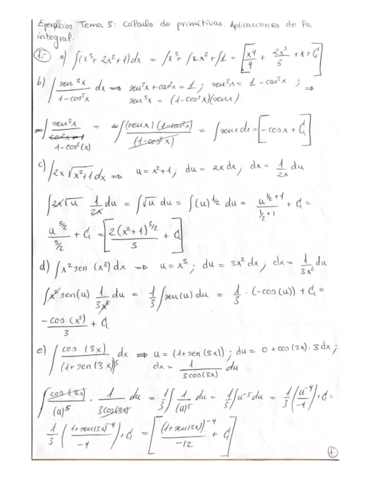 Ejercicios Tema 5: Cálculo de primitivas. Aplicaciones de la
integral.
1- a) ∫(x³ + 2x² + 1) dx = ∫x³ + ∫2x² + ∫1 = [x⁴/4 + 2x³/3 + x + C]
b) ∫ sen³x / 1-cos²x dx ⇒ sen²x + cos²x = 1; sen²x = 1 - cos²x; ⇒
sen³x = (1-cos²x)(senx)
= ∫ sen³x / 1-cos²(x) = ∫ (senx)(1-cos²x) / (1-cos²x) = ∫ senx dx = [-cosx + C]
c) ∫2x √(x²+1) dx ⇒ u = x²+1; du = 2x dx; dx = 1/2x du
∫2x√u 1/2x du = ∫√u du = ∫(u)^1/2 du = u^(1/2+1) / 1/2+1 + C =
u^3/2 / 3/2 + C = [2(x²+1)^3/2 / 3 + C]
d) ∫x² sen (x³) dx ⇒ u = x³; du = 3x² dx; dx = 1/3x² du
∫x² sen(u) 1/3x² du = 1/3 ∫sen(u) du = 1/3 · (-cos(u)) + C =
-cos (x³) / 3 + C
e) ∫ cos (3x) / (1+sen (3x))⁵ dx ⇒ u = (1+sen (3x)); du = 0 + cos(3x)·3dx;
dx = 1 / 3cos(3x) du
∫ cos (3x) / (u)⁵ · 1 / 3cos(3x) du = 1/3 ∫ 1/(u)⁵ du = 1/3 ∫u⁻⁵ du = 1/3 (u⁻⁴/-4) + C =
1/3 ((1+sen(3x))⁻⁴ / -4) + C = [(1+sen(3x))⁻⁴ / -12 + C]
1